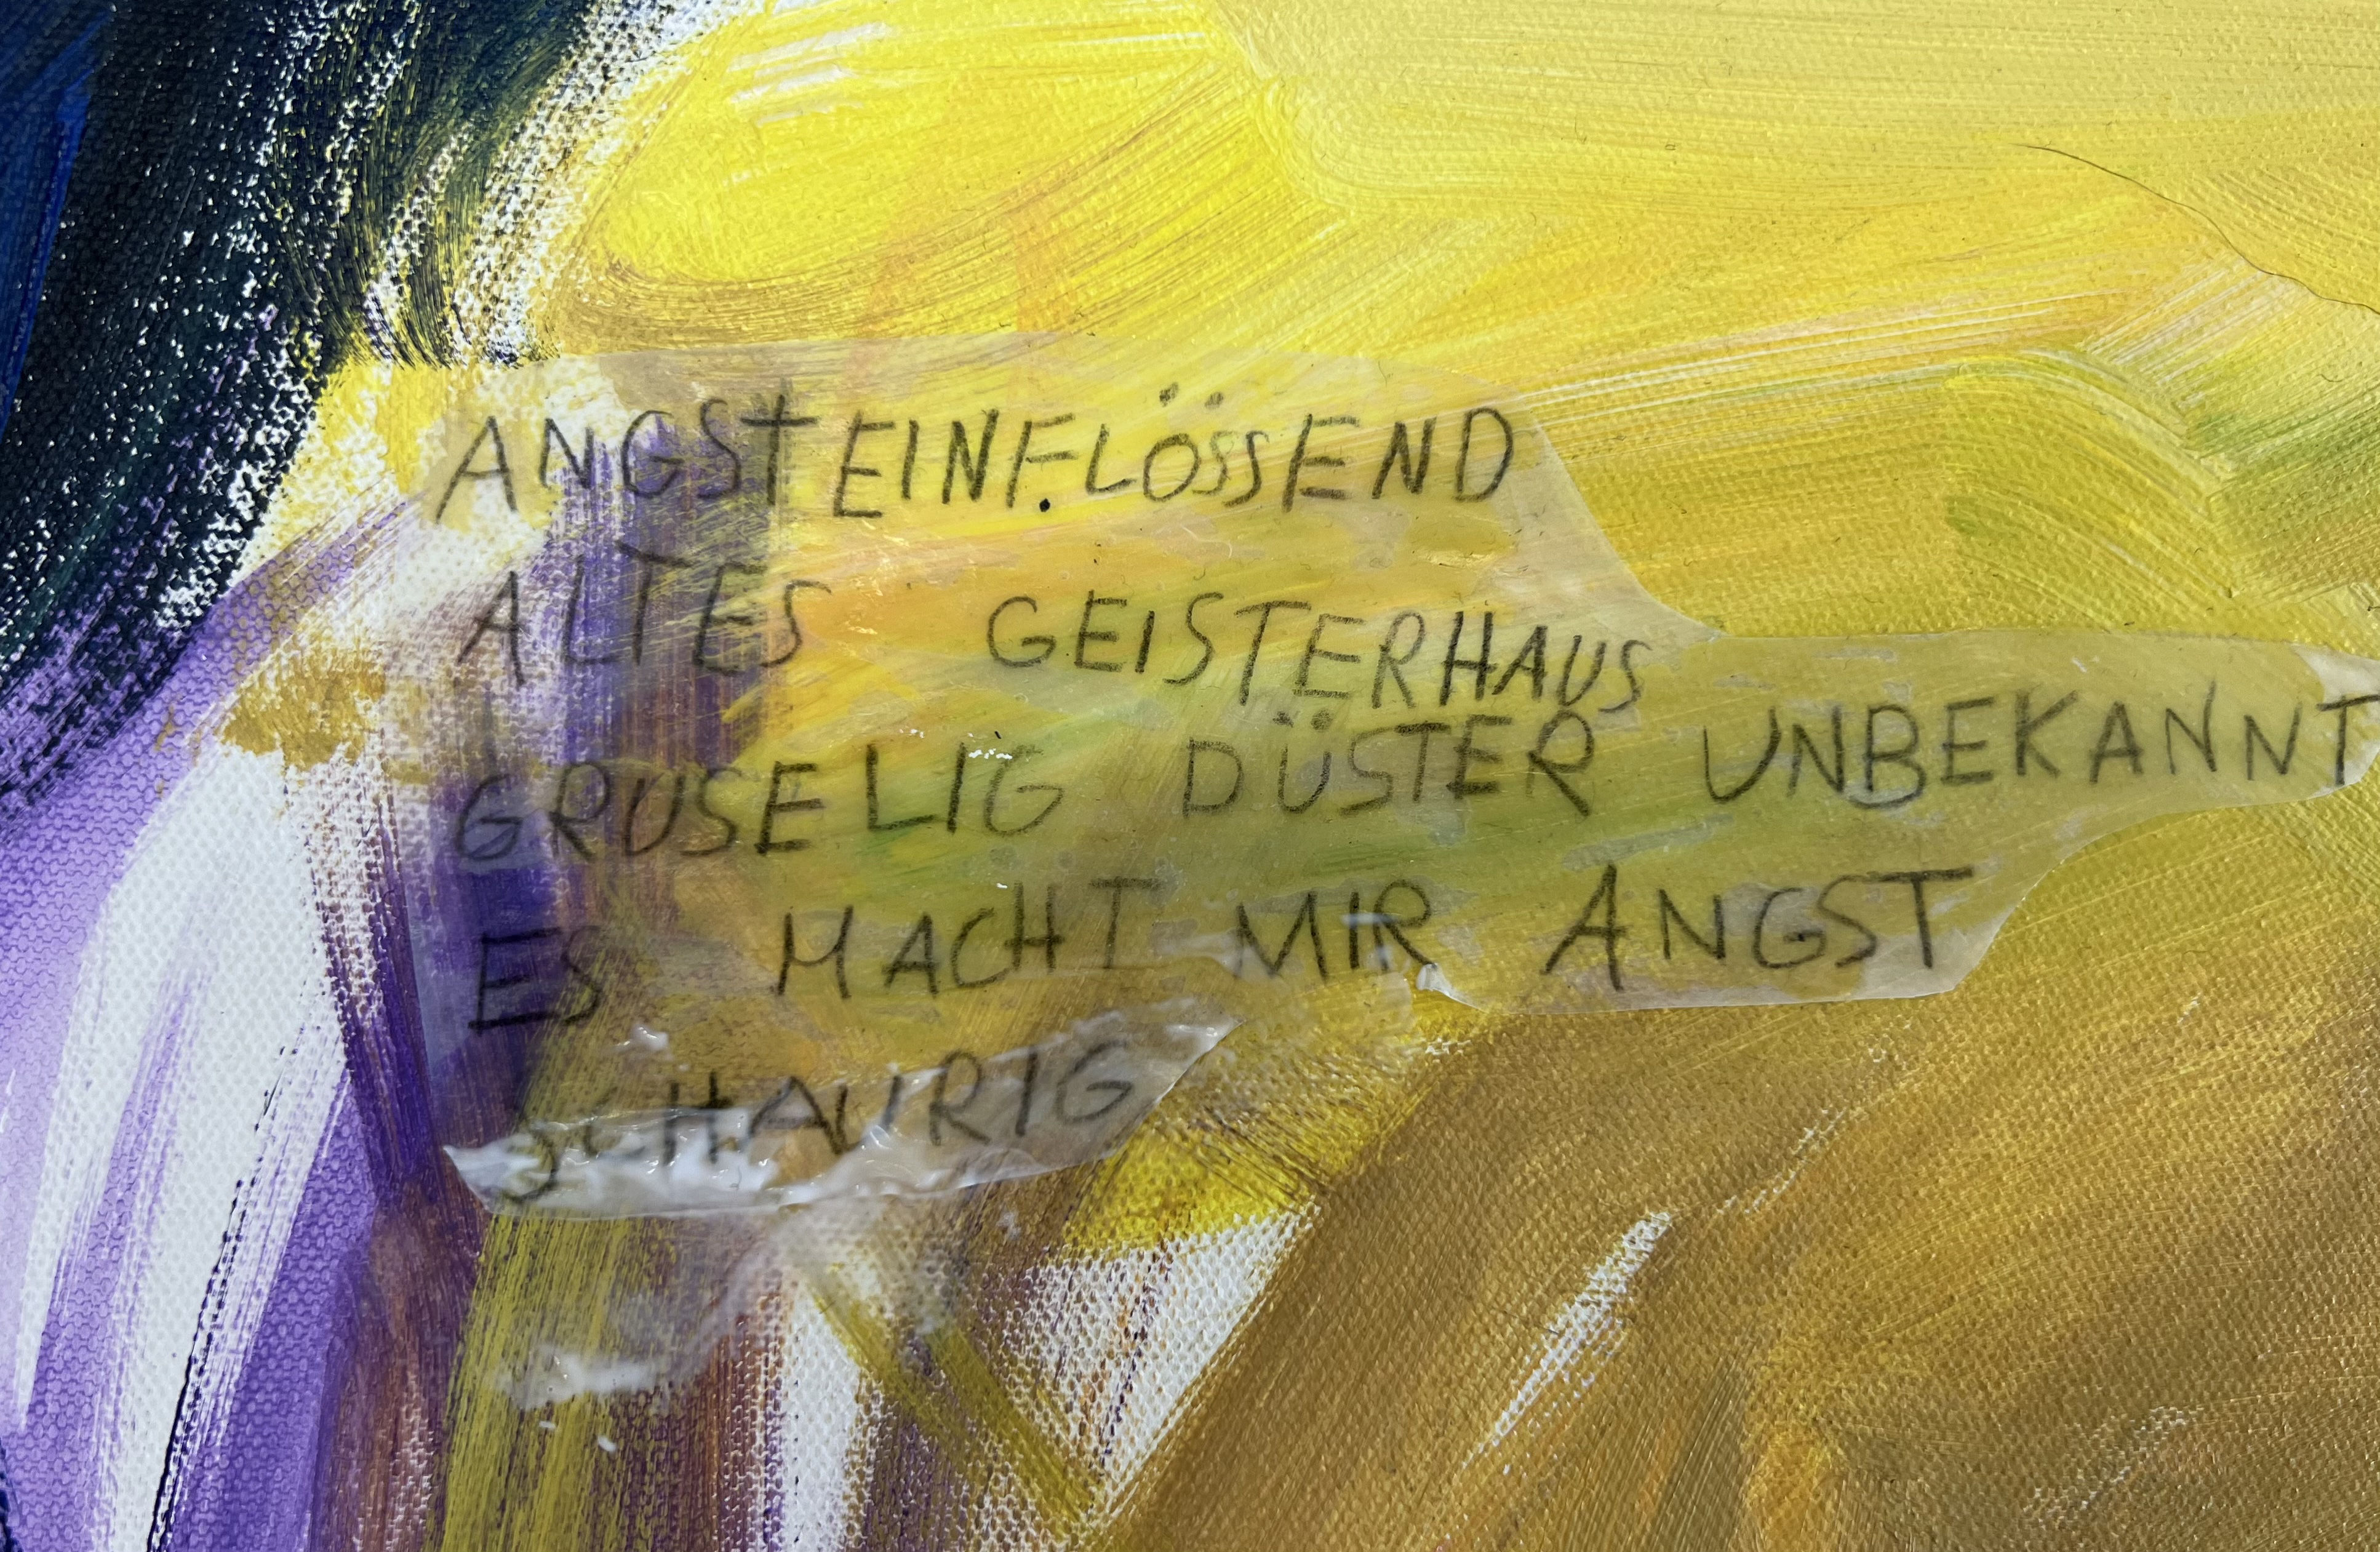 ANGSTEINFLÖSSEND
ALTES GEISTERHAUS
GRUSELIG DÜSTER UNBEKANNT
ES MACHT MIR ANGST
SCHAURIG